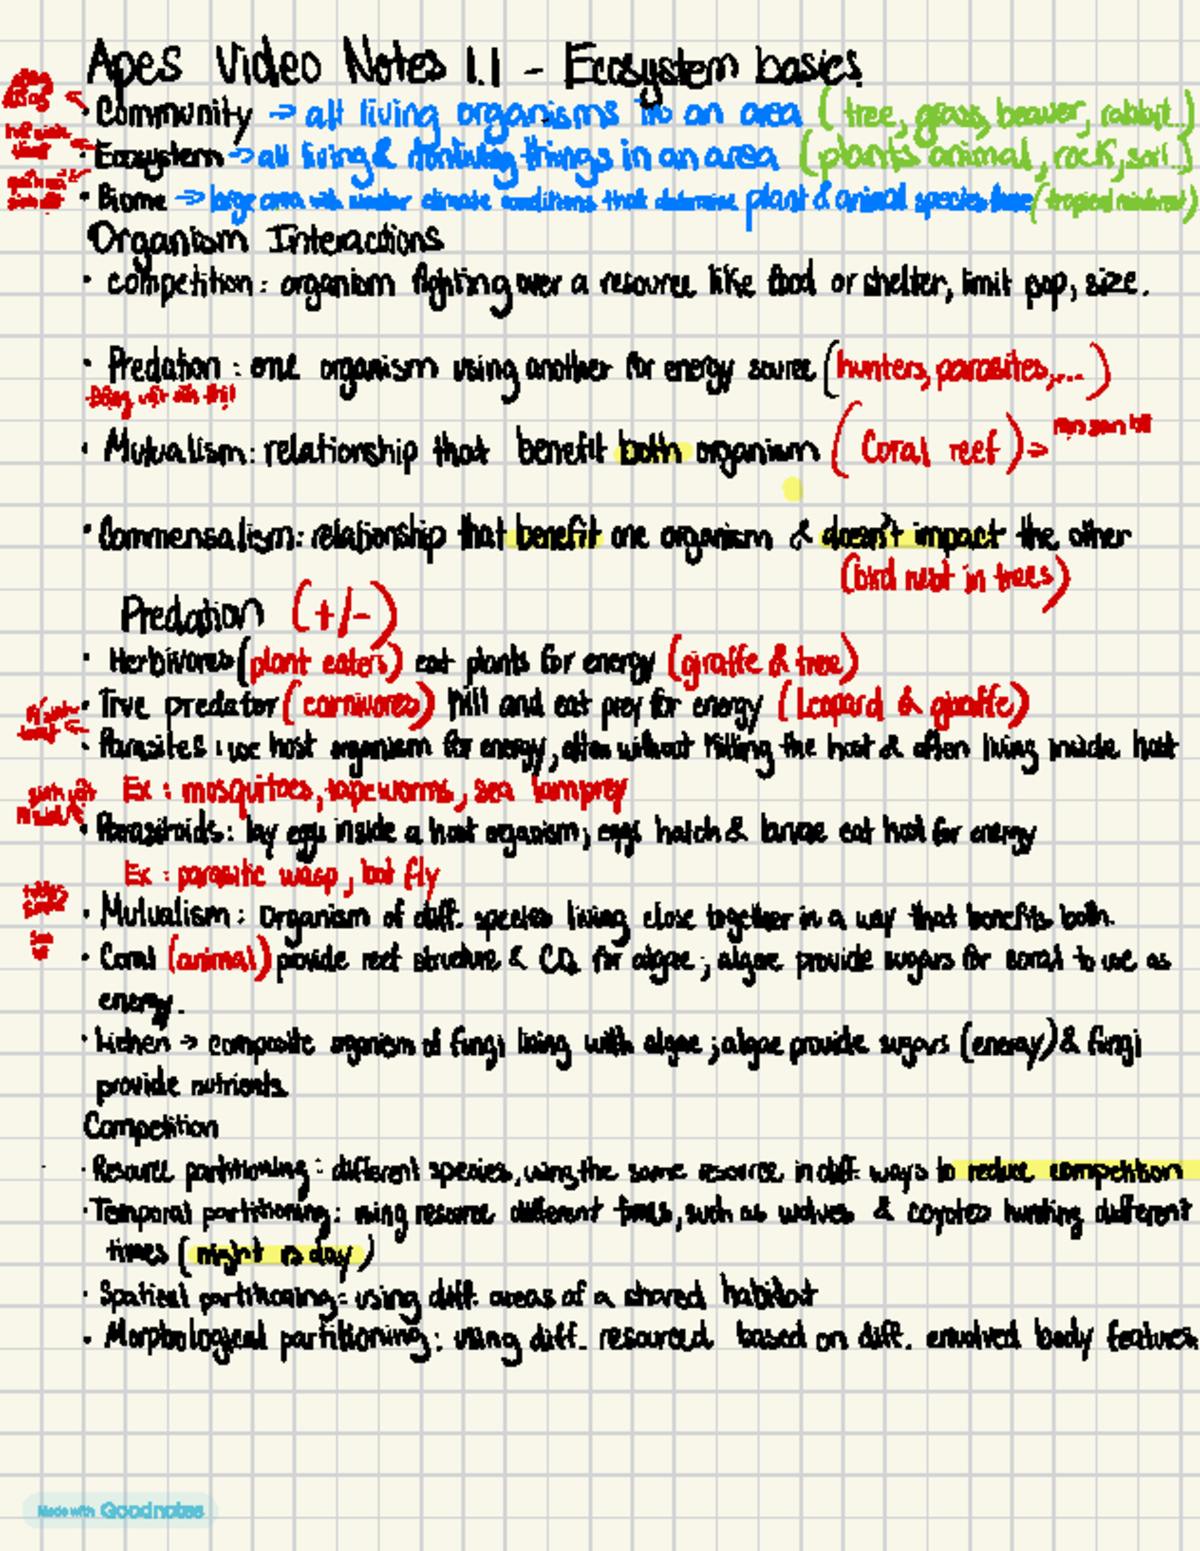 Apes Video Notes 1.1 - Ecosystem basics
• Community → all living organisms in an area (tree, grass, beaver, rabbit..)
• Ecosystem → all living & nonliving things in an area (plants animal, rock, soil..)
• Biome → large area with similar climate conditions that determine plant & animal species there (tropical rainforest)
Organism Interactions
• competition: organism fighting over a resource like food or shelter, limit pop, size.
• Predation: one organism using another for energy source (hunters, parasites,...)
• Mutualism: relationship that benefit both organism (Coral reef) →
• Commensalism: relationship that benefit one organism & doesn't impact the other
(bird nest in trees)
Predation (+/-)
• Herbivores (plant eaters) eat plants for energy (giraffe & tree)
• True predator (carnivores) kill and eat prey for energy (Leopard & giraffe)
• Parasites: use host organism for energy, often without killing the host & often living inside host
Ex: mosquitoes, tapeworms, sea lamprey
• Parasitoids: lay eggs inside a host organism; eggs hatch & larvae eat host for energy
Ex: parasitic wasp, bot fly
• Mutualism: Organism of diff. species living close together in a way that benefits both.
• Coral (animal) provide reef structure & CO2 for algae; algae provide sugars for coral to use as
energy.
• Lichen → composite organism of fungi living with algae; algae provide sugars (energy) & fungi
provide nutrients.
Competition
• Resource partitioning: different species, using the same resource in diff. ways to reduce competition
• Temporal partitioning: using resource different times, such as wolves & coyotes hunting different
times (night vs day)
• Spatial partitioning: using diff. areas of a shared habitat
• Morphological partitioning: using diff. resourced based on diff. envolved body features
Made with Goodnotes